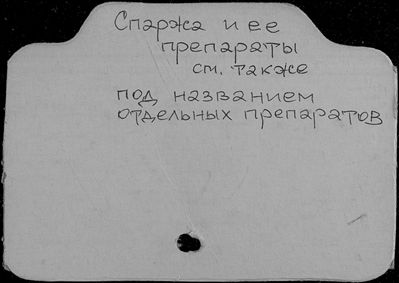 Спаржа и ее
препараты
см. также
под названием
отдельных препаратов